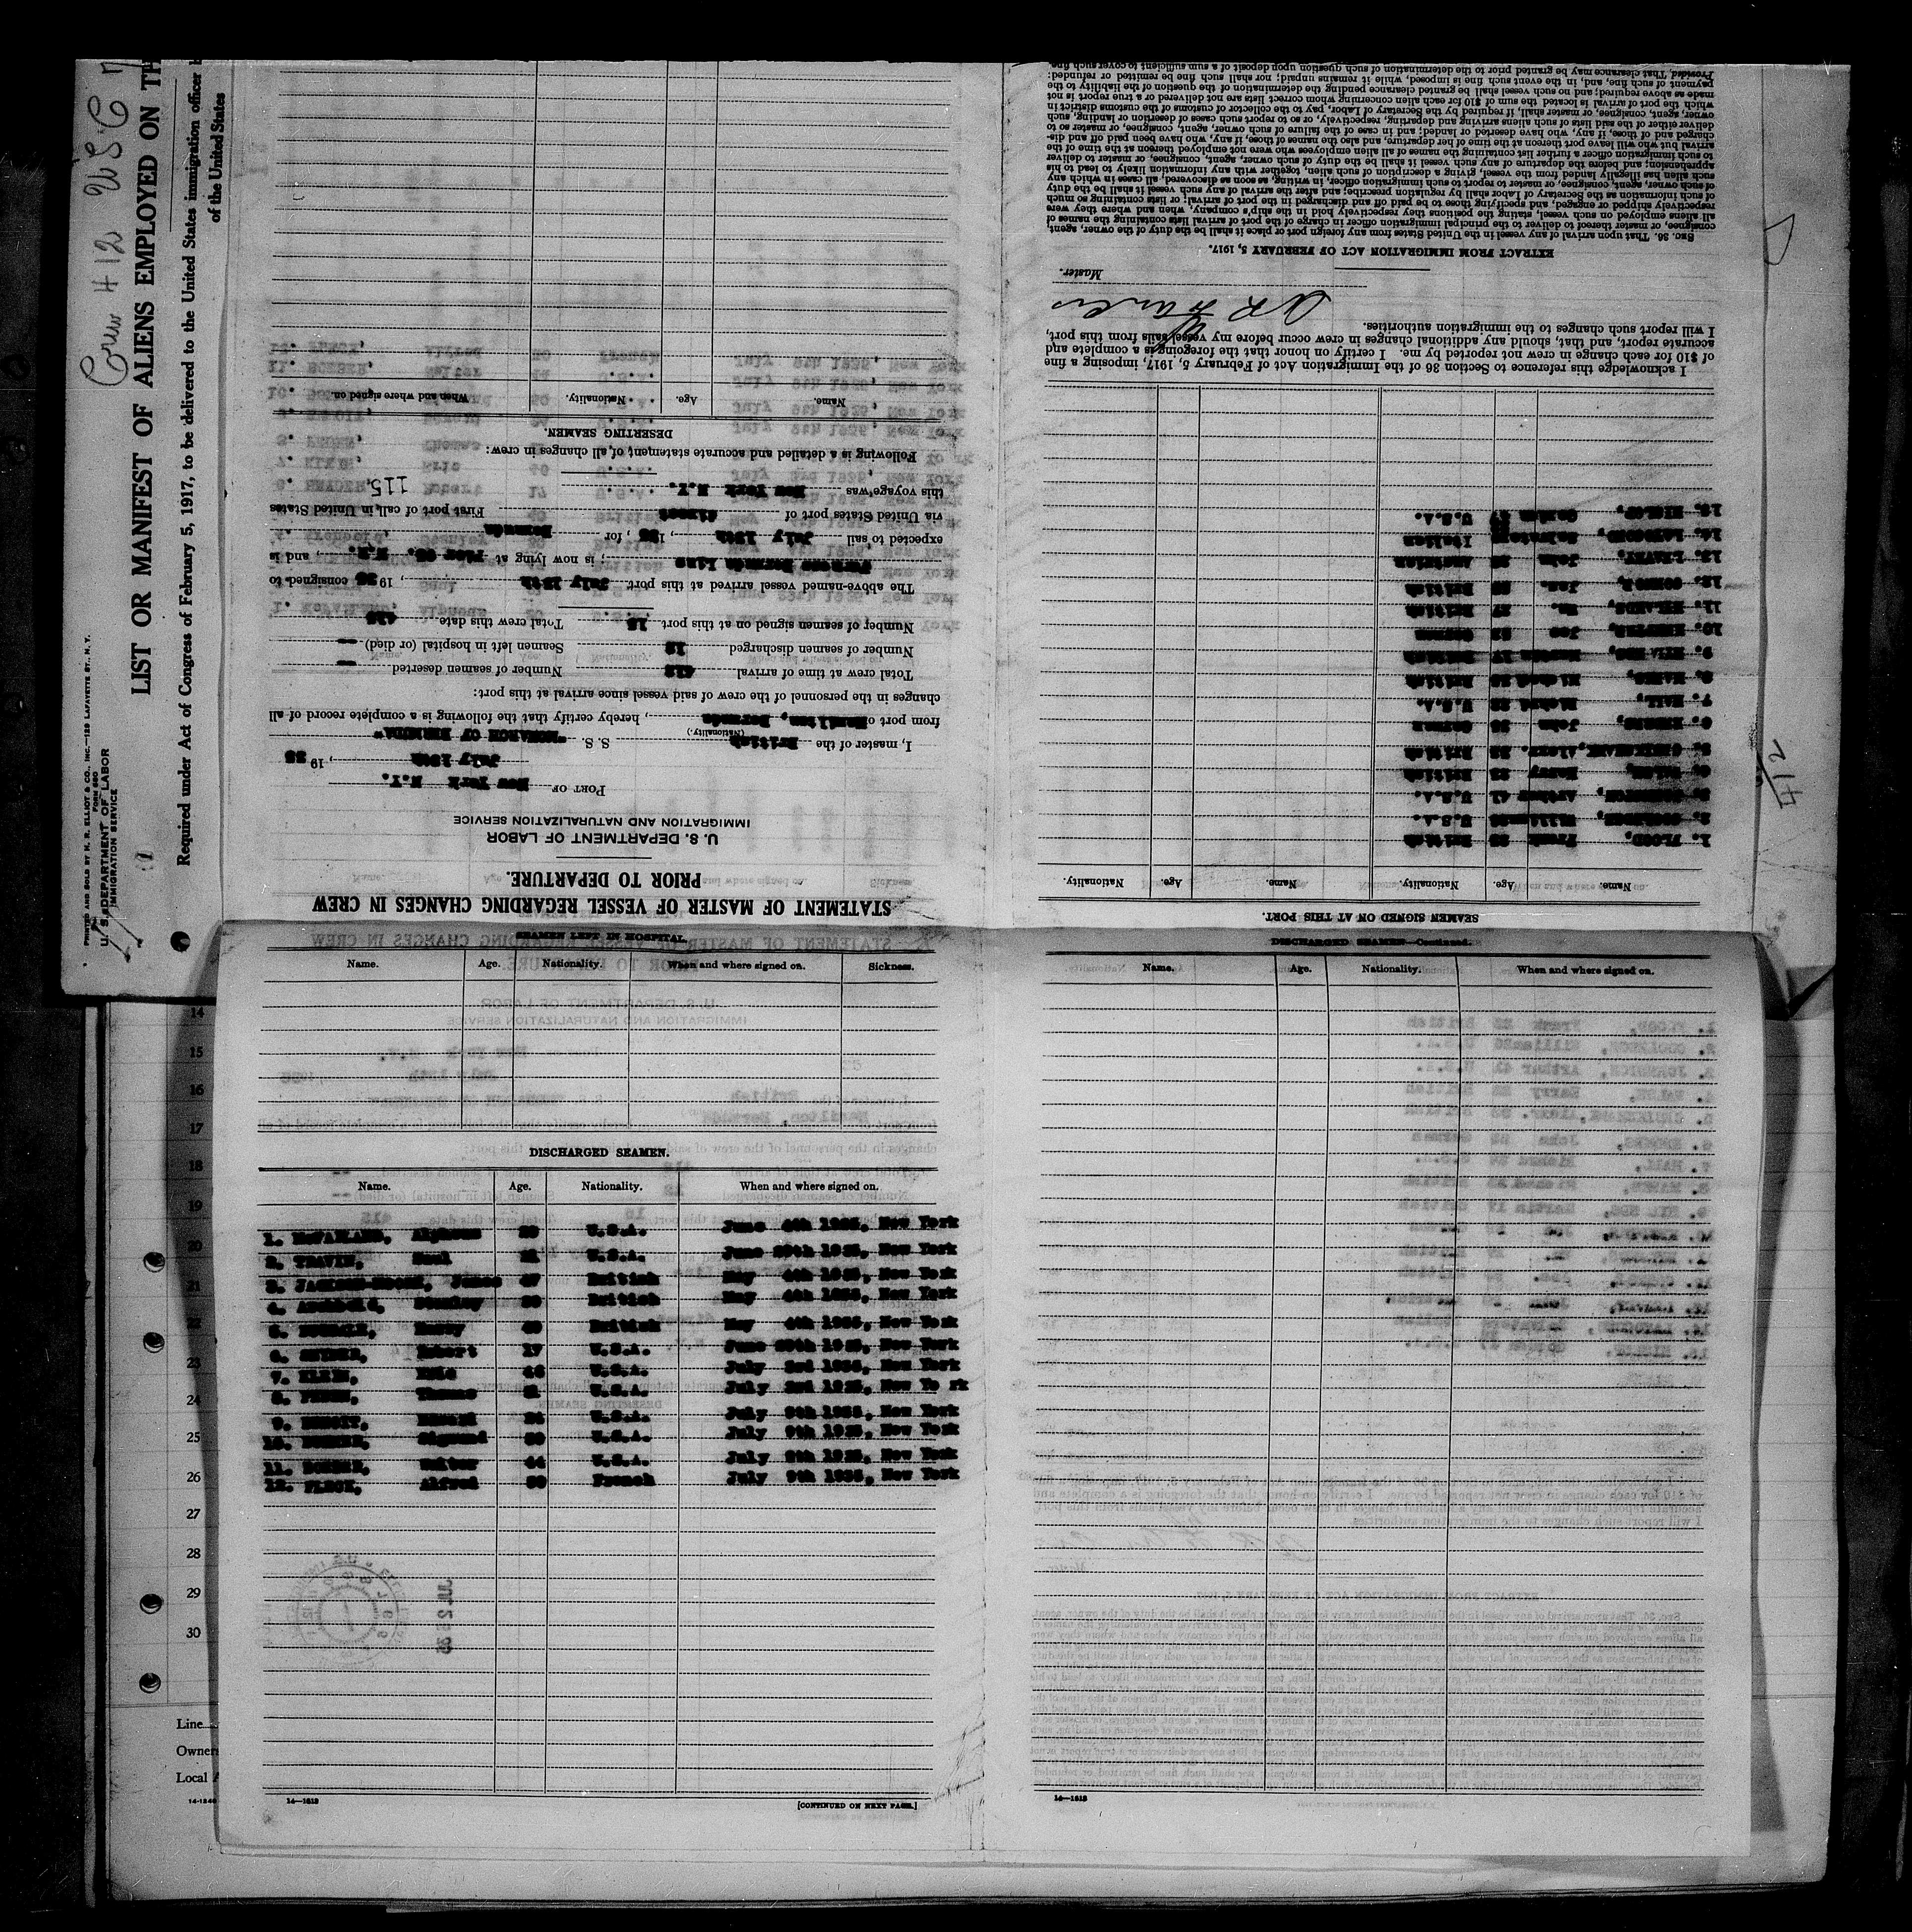 Crew 412 USC 7
PRINTED AND SOLD BY H. R. ELLIOT & CO., INC.—129 LAFAYETTE ST., N. Y.
FORM 680
U. S. DEPARTMENT OF LABOR
IMMIGRATION SERVICE
LIST OR MANIFEST OF ALIENS EMPLOYED ON TH
Required under Act of Congress of February 5, 1917, to be delivered to the United States immigration officer b
of the United States
STATEMENT OF MASTER OF VESSEL REGARDING CHANGES IN CREW
PRIOR TO DEPARTURE.
U. S. DEPARTMENT OF LABOR
IMMIGRATION AND NATURALIZATION SERVICE
PORT OF New York N.Y.
July 13th, 1935
I, master of the British S. S. "MONARCH OF BERMUDA"
(Nationality.)
from port of Hamilton, Bermuda, hereby certify that the following is a complete record of all
changes in the personnel of the crew of said vessel since arrival at this port:
Total crew at time of arrival 412 Number of seamen deserted --
Number of seamen discharged 12 Seamen left in hospital (or died) --
Number of seamen signed on at this port 15 Total crew this date 415
The above-named vessel arrived at this port July 12th, 1935 consigned to
Furness Bermuda Line, is now lying at Pier 95. N.R., and is
expected to sail July 13th, 1935, for Bermuda
via United States port of direct First port of call in United States
this voyage was New York N.Y. 115
Following is a detailed and accurate statement of all changes in crew:
DESERTING SEAMEN.
Name. Age. Nationality. When and where signed on.
SEAMEN SIGNED ON AT THIS PORT.
Name. Age. Nationality. Name. Age. Nationality.
1. FLOOD, Frank 22 British
2. William 26 U.S.A.
3. JOHNSTON, Arthur 41 U.S.A.
4. Harry 22 British
5. Alexr. British
6. John German
7. HALL, Richard U.S.A.
8. Richard British
9. HYLANDS, Martin 17 British
10. Joe German
11. Wm. British
12. Jos. British
13. John Austrian
14. Salvatore Italian
15. HISLOP, U.S.A.
I acknowledge this reference to Section 36 of the Immigration Act of February 5, 1917, imposing a fine
of $10 for each change in crew not reported by me. I certify on honor that the foregoing is a complete and
accurate report, and that, should any additional changes in crew occur before my vessel sails from this port,
I will report such changes to the immigration authorities.
Master.
EXTRACT FROM IMMIGRATION ACT OF FEBRUARY 5, 1917.
SEC. 36. That upon arrival of any vessel in the United States from any foreign port or place it shall be the duty of the owner, agent,
consignee, or master thereof to deliver to the principal immigration officer in charge of the port of arrival lists containing the names of
all aliens employed on such vessel, stating the positions they respectively hold in the ship's company, when and where they were
respectively shipped or engaged, and specifying those to be paid off and discharged in the port of arrival; or lists containing so much
of such information as the Secretary of Labor shall by regulation prescribe; and after the arrival of any such vessel it shall be the duty
of such owner, agent, consignee, or master to report to such immigration officer, in writing, as soon as discovered, all cases in which any
such alien has illegally landed from the vessel, giving a description of such alien, together with any information likely to lead to his
apprehension; and before the departure of any such vessel it shall be the duty of such owner, agent, consignee, or master to deliver
to such immigration officer a further list containing the names of all alien employees who were not employed thereon at the time of the
arrival but who will leave port thereon at the time of her departure, and also the names of those, if any, who have been paid off and dis-
charged and of those, if any, who have deserted or landed; and in case of the failure of such owner, agent, consignee, or master so to
deliver either of the said lists of such aliens arriving and departing, respectively, or so to report such cases of desertion or landing, such
owner, agent, consignee, or master shall, if required by the Secretary of Labor, pay to the collector of customs of the customs district in
which the port of arrival is located the sum of $10 for each alien concerning whom correct lists are not delivered or a true report is not
made as above required; and no such vessel shall be granted clearance pending the determination of the question of the liability to the
payment of such fine, and, in the event such fine is imposed, while it remains unpaid; nor shall such fine be remitted or refunded:
Provided, That clearance may be granted prior to the determination of such question upon deposit of a sum sufficient to cover such fine.
412
SEAMEN LEFT IN HOSPITAL.
Name. Age. Nationality. When and where signed on. Sickness.
DISCHARGED SEAMEN.
Name. Age. Nationality. When and where signed on.
1. McFARLAND, Alphons 29 U.S.A. June 4th 1935, New York
2. TRAVIN, Saul 21 U.S.A. June 29th 1935, New York
3. James 47 British May 4th 1935, New York
4. Archbold, Stanley British May 4th 1935, New York
5. Harry British May 4th 1935, New York
6. SNYDER, Robert 17 U.S.A. June 29th 1935, New York
7. KLEIN, 46 U.S.A. July 3rd 1935, New York
8. Thomas 21 U.S.A. July 3rd 1935, New Yo rk
9. Edward 24 U.S.A. July 9th 1935, New York
10. Sigmund U.S.A. July 9th 1935, New York
11. Walter 44 U.S.A. July 9th 1935, New York
12. Alfred French July 9th 1935, New York
JUL 26 35
14—1613
[CONTINUED ON NEXT PAGE.]
DISCHARGED SEAMEN—Continued.
Name. Age. Nationality. When and where signed on.
14—1613
14
15
16
17
18
19
20
21
22
23
24
25
26
27
28
29
30
Line
Owners
Local A
14-1240